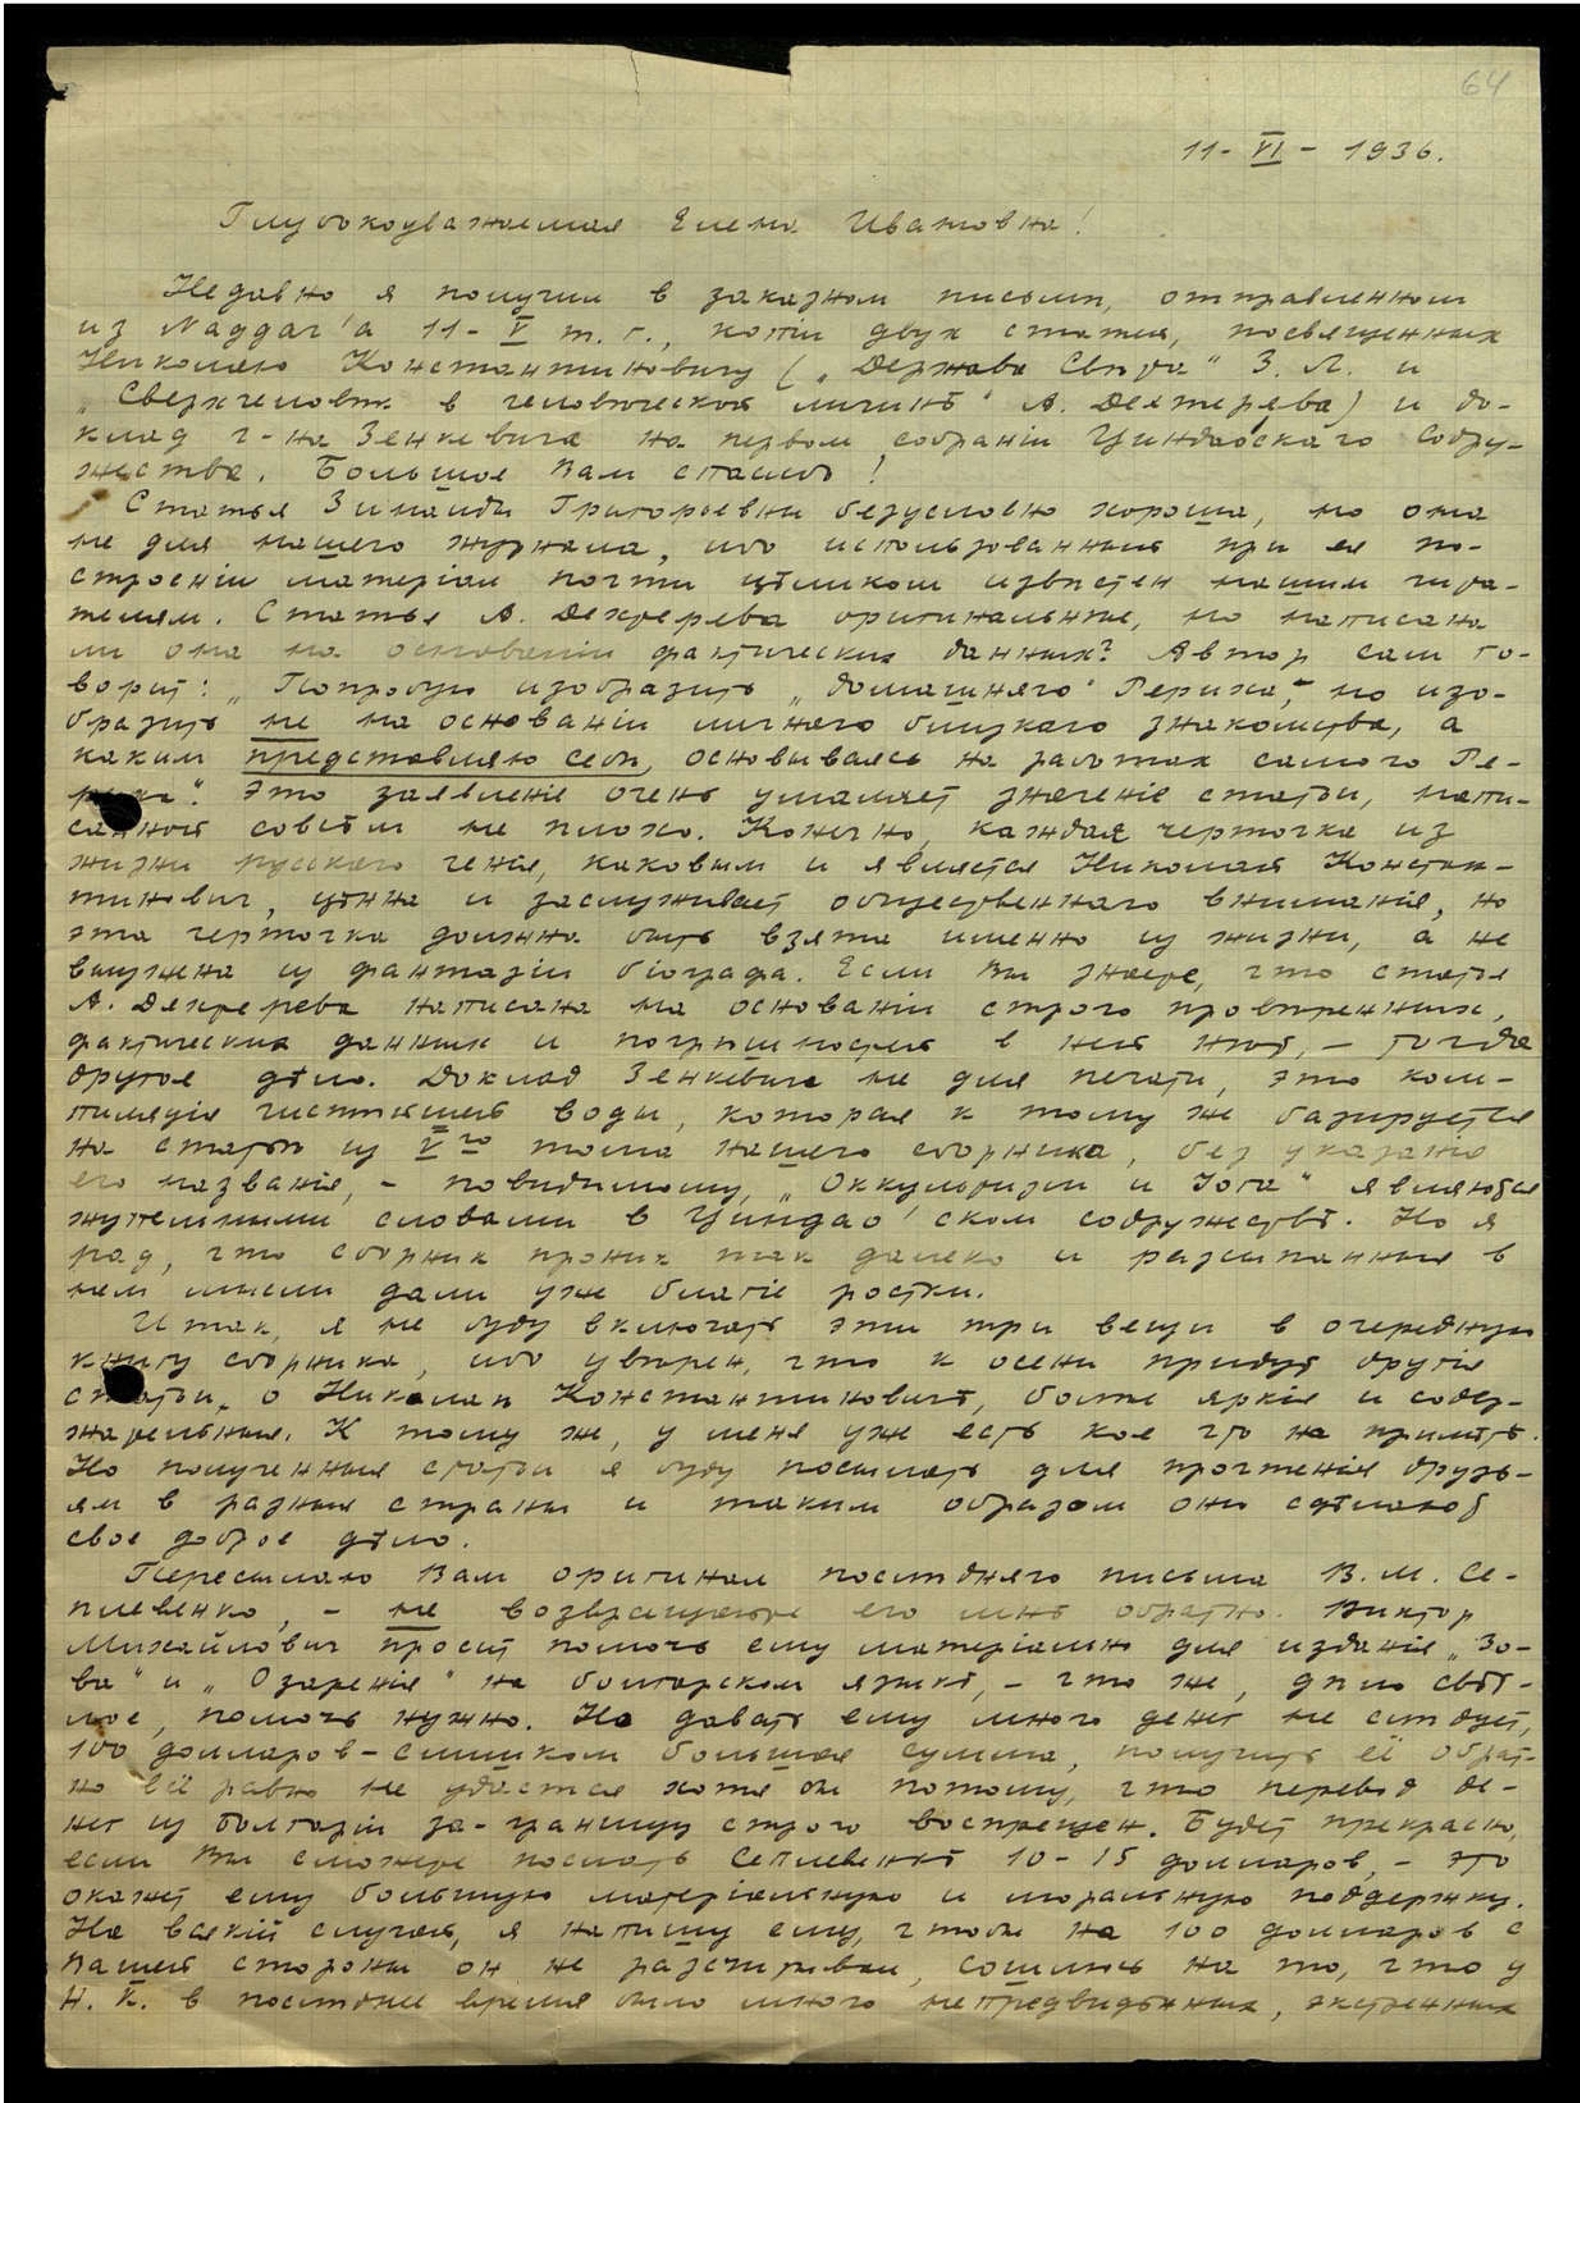 64
11-VI-1936.
Глубокоуважаемая Елена Ивановна!
Недавно я получил в заказном письмѣ, отправленном
из Naggar'а 11-V т. г., копіи двух статей, посвященных
Николаю Константиновичу („Держава Свѣта" З. Л. и
„Сверхчеловѣк в человѣческой личинѣ" А. Дехтерева) и до-
клад г-на Зенкевича на первом собраніи Циндаоскаго Содру-
жества. Большое Вам спасибо!
Статья Зинаиды Григорьевны безусловно хороша, но она
не для нашего журнала, ибо использованный при ея по-
строеніи матеріал почти цѣликом извѣстен нашим чита-
телям. Статья А. Дехтерева оригинальнѣе, но написана
ли она на основаніи фактических данных? Автор сам го-
ворит: „Попробую изобразить „домашняго" Рериха, но изо-
бразить не на основаніи личнаго близкаго знакомства, а
каким представляю себѣ, основываясь на работах самого Ре-
риха". Это заявленіе очень умаляет значеніе статьи, напи-
санной совсѣм не плохо. Конечно, каждая черточка из
жизни русскаго генія, каковым и является Николай Констан-
тинович, цѣнна и заслуживает общественнаго вниманія, но
эта черточка должна быть взята именно из жизни, а не
выужена из фантазіи біографа. Если Вы знаете, что статья
А. Дехтерева написана на основаніи строго провѣренных,
фактических данных и погрѣшностей в ней нѣт, – тогда
другое дѣло. Доклад Зенкевича не для печати, это ком-
пиляція чистѣйшей воды, которая к тому же базируется
на статьѣ из V го тома нашего сборника, без указанія
его названія, – повидимому, „Оккультизм и Іога" являются
жупельными словами в Циндао'ском содружествѣ. Но я
рад, что сборник проник так далеко и разсыпанныя в
нем мысли дали уже благіе ростки.
Итак, я не буду включать эти три вещи в очередную
книгу сборника, ибо увѣрен, что к осени придут другія
статьи, о Николаѣ Константиновичѣ, болѣе яркія и содер-
жательныя. К тому же, у меня уже есть кое что на примѣтѣ.
Но полученныя статьи я буду посылать для прочтенія друзь-
ям в разныя страны и таким образом они сдѣлают
свое доброе дѣло.
Пересылаю Вам оригинал послѣдняго письма В. М. Се-
плевенко, – не возвращайте его мнѣ обратно. Виктор
Михайлович просит помочь ему матеріально для изданія „Зо-
ва" и „Озаренія" на болгарском языкѣ, – что же, дѣло свѣт-
лое, помочь нужно. Но давать ему много денег не слѣдует,
100 долларов – слишком большая сумма, получить её обрат-
но всё равно не удастся хотя бы потому, что перевод де-
нег из Болгаріи за-границу строго воспрещен. Будет прекрасно,
если Вы сможете послать Сеплевенкѣ 10-15 долларов, – это
окажет ему большую матеріальную и моральную поддержку.
На всякій случай, я напишу ему, чтобы на 100 долларов с
Вашей стороны он не разсчитывал, сошлюсь на то, что у
Н. К. в послѣднее время было много непредвидѣнных, экстренных